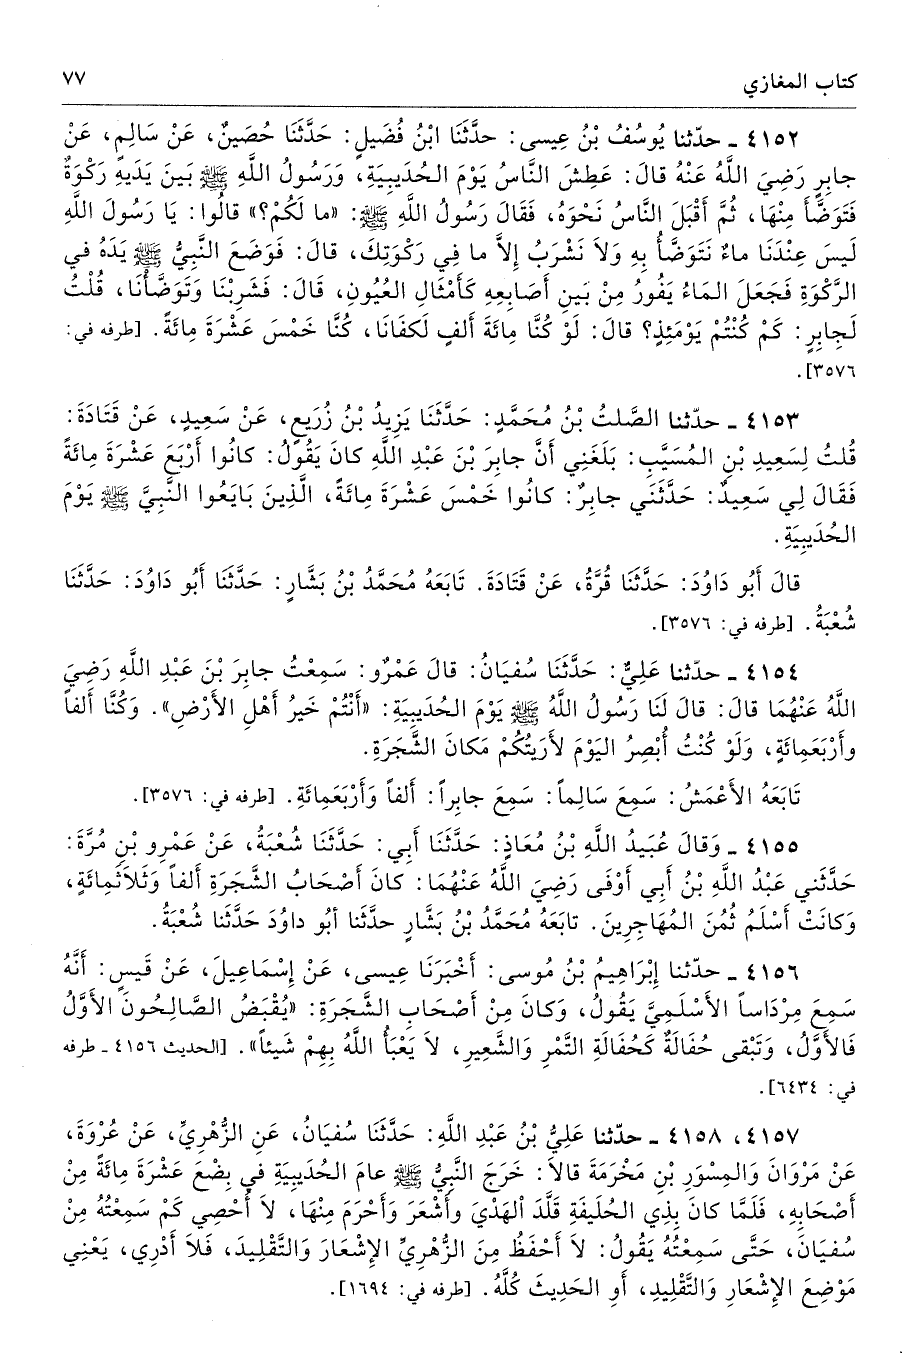 كتاب المغازي ٧٧
٤١٥٢ ـ حدّثنا يُوسُفُ بْنُ عِيسى: حدَّثَنَا ابْنُ فُضَيلٍ: حَدَّثَنَا حُصَينٌ، عَنْ سَالِمٍ، عَنْ
جابِرٍ رَضِيَ اللَّهُ عَنْهُ قالَ: عَطِشَ النَّاسُ يَوْمَ الحُدَيبِيَةِ، وَرَسُولُ اللَّهِ ﷺ بَينَ يَدَيهِ رَكْوَةٌ
فَتَوَضَّأَ مِنْهَا، ثُمَّ أَقْبَلَ النَّاسُ نَحْوَهُ، فَقَالَ رَسُولُ اللَّهِ ﷺ: «ما لَكُمْ؟» قالُوا: يَا رَسُولَ اللَّهِ
لَيسَ عِنْدَنَا ماءٌ نَتَوَضَّأُ بِهِ وَلاَ نَشْرَبُ إِلاَّ ما فِي رَكْوَتِكَ، قالَ: فَوَضَعَ النَّبِيُّ ﷺ يَدَهُ في
الرَّكْوَةِ فَجَعَلَ المَاءُ يَفُورُ مِنْ بَينِ أَصَابِعِهِ كَأَمْثَالِ العُيُونِ، قَالَ: فَشَرِبْنَا وَتَوَضَّأْنَا، قُلْتُ
لَجِابِرٍ: كَمْ كُنْتُمْ يَوْمَئِذٍ؟ قالَ: لَوْ كُنَّا مِائَةَ أَلفٍ لَكفَانَا، كُنَّا خَمْسَ عَشْرَةَ مِائَةً. [طرفه في:
٣٥٧٦].
٤١٥٣ ـ حدّثنا الصَّلتُ بْنُ مُحَمَّدٍ: حَدَّثَنَا يَزِيدُ بْنُ زُرَيعٍ، عَنْ سَعِيدٍ، عَنْ قَتَادَةَ:
قُلتُ لِسَعِيدِ بْنِ المُسَيَّبِ: بَلَغَنِي أَنَّ جابِرَ بْنَ عَبْدِ اللَّهِ كانَ يَقُولُ: كانُوا أَرْبَعَ عَشْرَةَ مِائَةً
فَقَالَ لِي سَعِيدٌ: حَدَّثَنِي جابِرٌ: كانُوا خَمْسَ عَشْرَةَ مِائَةً، الَّذِينَ بَايَعُوا النَّبِيَّ ﷺ يَوْمَ
الحُدَيبِيَةِ.
قالَ أَبُو دَاوُدَ: حَدَّثَنَا قُرَّةُ، عَنْ قَتَادَةَ. تَابَعَهُ مُحَمَّدُ بْنُ بَشَّارٍ: حَدَّثَنَا أَبُو دَاوُدَ: حَدَّثَنَا
شُعْبَةُ. [طرفه في: ٣٥٧٦].
٤١٥٤ ـ حدّثنا عَلِيٌّ: حَدَّثَنَا سُفيَانُ: قالَ عَمْرٌو: سَمِعْتُ جابِرَ بْنَ عَبْدِ اللَّهِ رَضِيَ
اللَّهُ عَنْهُمَا قالَ: قالَ لَنَا رَسُولُ اللَّهُ ﷺ يَوْمَ الحُدَيبِيَةِ: «أَنْتُمْ خَيرُ أَهْلِ الأَرْضِ». وَكُنَّا أَلفاً
وأَرْبَعَمِائَةٍ، وَلَوْ كُنْتُ أُبْصِرُ اليَوْمَ لأَرَيتُكُمْ مَكانَ الشَّجَرَةِ.
تَابَعَهُ الأَعْمَشُ: سَمِعَ سَالِماً: سَمِعَ جابِراً: أَلفاً وَأَرْبَعَمِائَةِ. [طرفه في: ٣٥٧٦].
٤١٥٥ ـ وَقالَ عُبَيدُ اللَّهِ بْنُ مُعَاذٍ: حَدَّثَنَا أَبِي: حَدَّثَنَا شُعْبَةُ، عَنْ عَمْرِو بْنِ مُرَّةَ:
حَدَّثَنِي عَبْدُ اللَّهِ بْنُ أَبِي أَوْفَى رَضِيَ اللَّهُ عَنْهُمَا: كانَ أَصْحَابُ الشَّجَرَةِ أَلفاً وَثَلاَثَمِائَةٍ،
وَكانَتْ أَسْلَمُ ثُمُنَ المُهَاجِرِينَ. تابَعَهُ مُحَمَّدُ بْنُ بَشَّارٍ حدَّثَنا أبُو داوُدَ حَدَّثَنا شُعْبَةُ.
٤١٥٦ ـ حدّثنا إِبْرَاهِيمُ بْنُ مُوسى: أَخْبَرَنَا عِيسى، عَنْ إِسْمَاعِيلَ، عَنْ قَيسٍ: أَنَّهُ
سَمِعَ مِرْدَاساً الأَسْلَمِيَّ يَقُولُ، وَكانَ مِنْ أَصْحَابِ الشَّجَرَةِ: «يُقْبَضُ الصَّالِحُونَ الأَوَّلُ
فَالأَوَّلُ، وَتَبْقى حُفَالَةٌ كَحُفَالَةِ التَّمْرِ وَالشَّعِيرِ، لاَ يَعْبَأُ اللَّهُ بِهِمْ شَيئاً». [الحديث ٤١٥٦ ـ طرفه
في: ٦٤٣٤].
٤١٥٧، ٤١٥٨ ـ حدّثنا عَلِيُّ بْنُ عَبْدِ اللَّهِ: حَدَّثَنَا سُفيَانُ، عَنِ الزُّهْرِيِّ، عَنْ عُرْوَةَ،
عَنْ مَرْوَانَ وَالمِسْوَرِ بْنِ مَخْرَمَةَ قالاَ: خَرَجَ النَّبِيُّ ﷺ عامَ الحُدَيبِيَةِ في بِضْعَ عَشْرَةَ مِائَةً مِنْ
أَصْحَابِهِ، فَلَمَّا كانَ بِذِي الحُلَيفَةِ قَلَّدَ اْلهَدْيَ وأَشْعَرَ وَأَحْرَمَ مِنْهَا، لاَ أُحْصِي كَمْ سَمِعْتُهُ مِنْ
سُفيَانَ، حَتَّى سَمِعْتُهُ يَقُولُ: لاَ أَحْفَظُ مِنَ الزُّهْرِيِّ الإِشْعَارَ وَالتَّقْلِيدَ، فَلاَ أَدْرِي، يَعْنِي
مَوْضِعَ الإِشْعَارِ وَالتَّقْلِيدِ، أَوِ الحَدِيثَ كُلَّهُ. [طرفه في: ١٦٩٤].